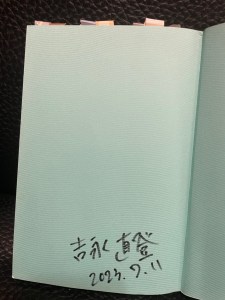 吉永 直登
2023.7.11